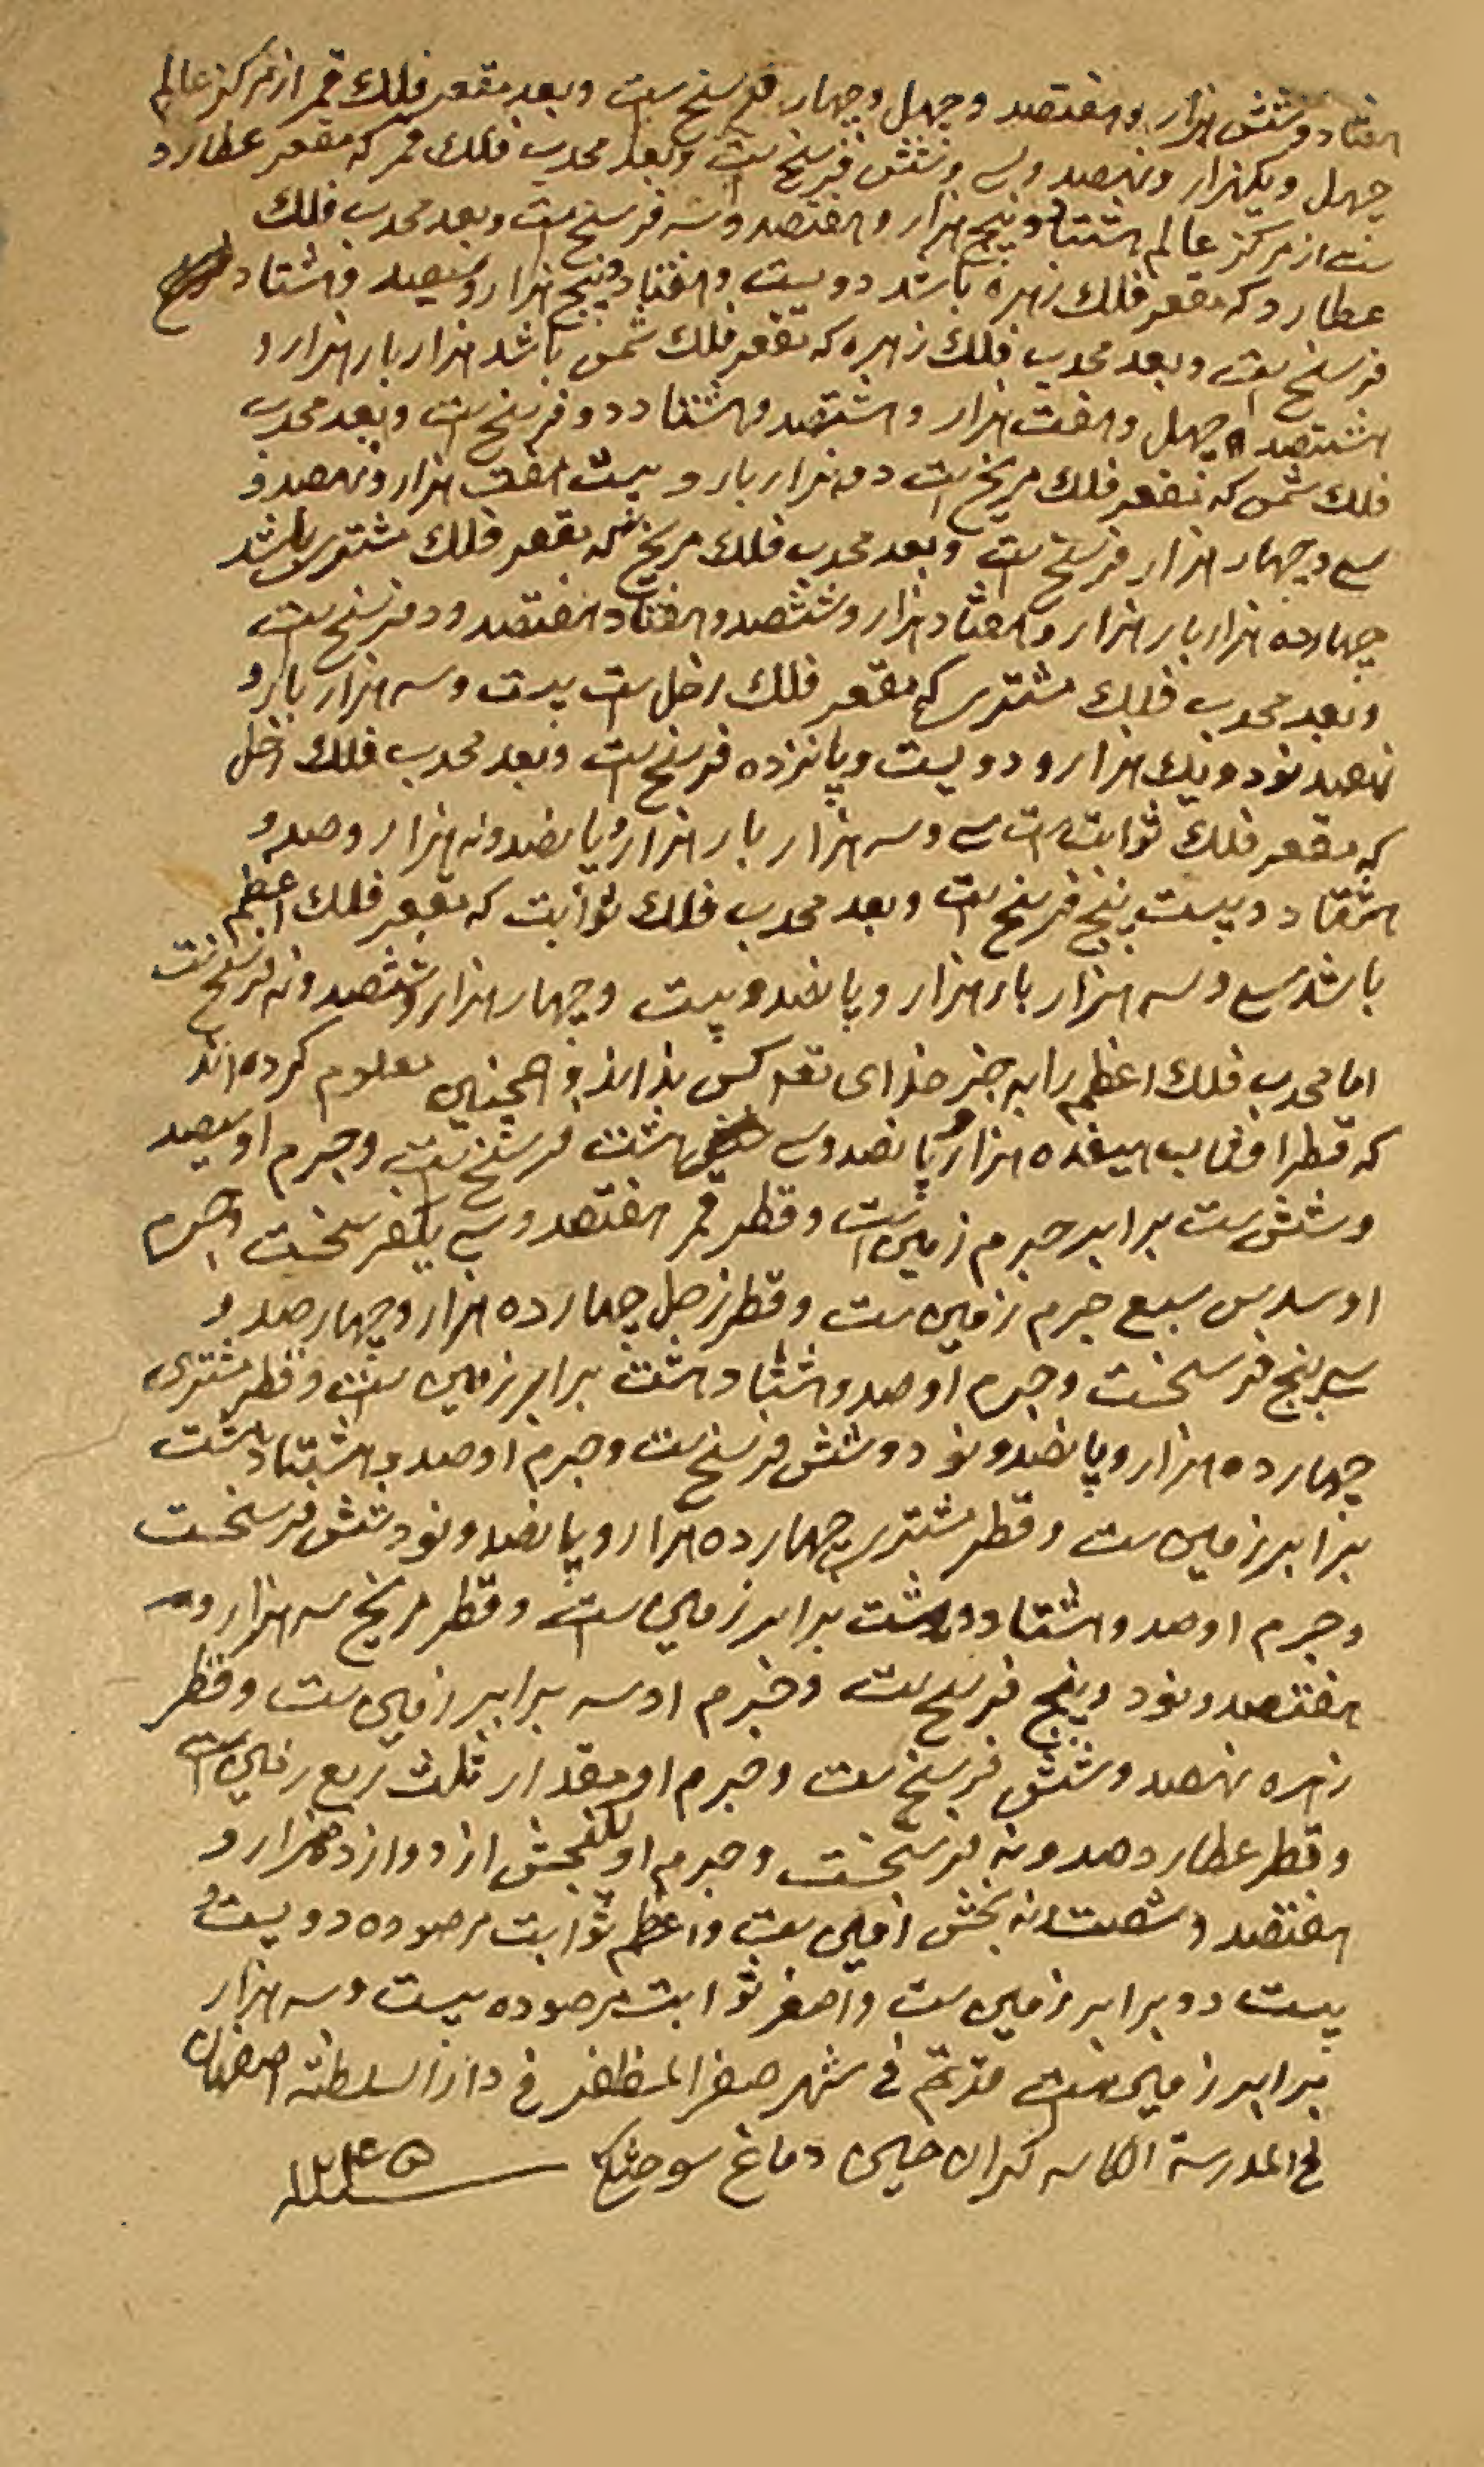 هفتاد و شش هزار و هفتصد و چهل و چهار فرسنخ است و بعد مقعر فلك قمر از مركز عالم
چهل و یکهزار و نهصد و سی و شش فرسنخ است و بعد محدب فلك قمر كه مقعر عطارد
ست از مركز عالم هشتاد و پنج هزار و هفتصد و سه فرسنخ است و بعد محدب فلك
عطارد كه مقعر فلك زهره باشد دویست و هفتاد و پنج هزار و سیصد و هشتاد
فرسنخ است و بعد محدب فلك زهره كه مقعر فلك شمس باشد هزار بار هزار و
هشتصد و چهل و هفت هزار و هشتصد و هشتاد و دو فرسنخ است و بعد محدب
فلك شمس كه مقعر فلك مریخ است دو هزار بار و بیست هفت هزار و نهصد و
سی و چهار هزار فرسنخ است و بعد محدب فلك مریخ كه مقعر فلك مشتری باشد
چهارده هزار بار هزار و هفتاد هزار و ششصد و هفتاد هفتصد و دو فرسنخ است
و بعد محدب فلك مشتری كه مقعر فلك زحل ست بیست و سه هزار بار و
نهصد نود و یك هزار و دویست و پانزده فرسنخ است و بعد محدب فلك زحل
كه مقعر فلك ثوابت است سی و سه هزار بار هزار و پانصد و نه هزار و صد و
هشتاد و بیست پنج فرسنخ است و بعد محدب فلك ثوابت كه مقعر فلك اعظم
باشد سی و سه هزار بار هزار و پانصد و بیست و چهار هزار و ششصد و نه فرسنخ است
اما محدب فلك اعظم را به جز خدای تعه كس نداند و همچنین معلوم كرده اند
كه قطر افتاب هیفده هزار و پانصد و سی هشت فرسنخ است و جرم او سیصد
و شش ست برابر جرم زمین است و قطر قمر هفتصد و سی یكفرسخست و جرم
او سدس سبع جرم زمین ست و قطر زحل چهارده هزار و چهارصد و
سی پنج فرسخست و جرم او صد و هشتاد و هشت برابر زمین ست و قطر مشتری
چهارده هزار و پانصد و نود و شش فرسنخ ست و جرم او صد و هشتاد هشت
برابر زمین ست و قطر مشتری چهارده هزار و پانصد و نود شش فرسخست
و جرم او صد و هشتاد و هشت برابر زمین است و قطر مریخ سه هزار و
هفتصد و نود و پنج فرسخ ست و جرم او سه برابر زمین ست و قطر
زهره نهصد و شش فرسنخ ست و جرم او مقدار ثلث ربع زمین است
و قطر عطارد صد و نه فرسخست و جرم او یكبخش از دوازده هزار و
هفتصد و شصت نه بخش زمین ست و اعظم ثوابت مرصوده دویست و
بیست دو برابر زمین ست و اصغر ثوابت مرصوده بیست و سه هزار
برابر زمین ست قد تم فی شهر صفر المظفر فی دار السلطنه اصفهان
فی المدرسة الكاسه كران